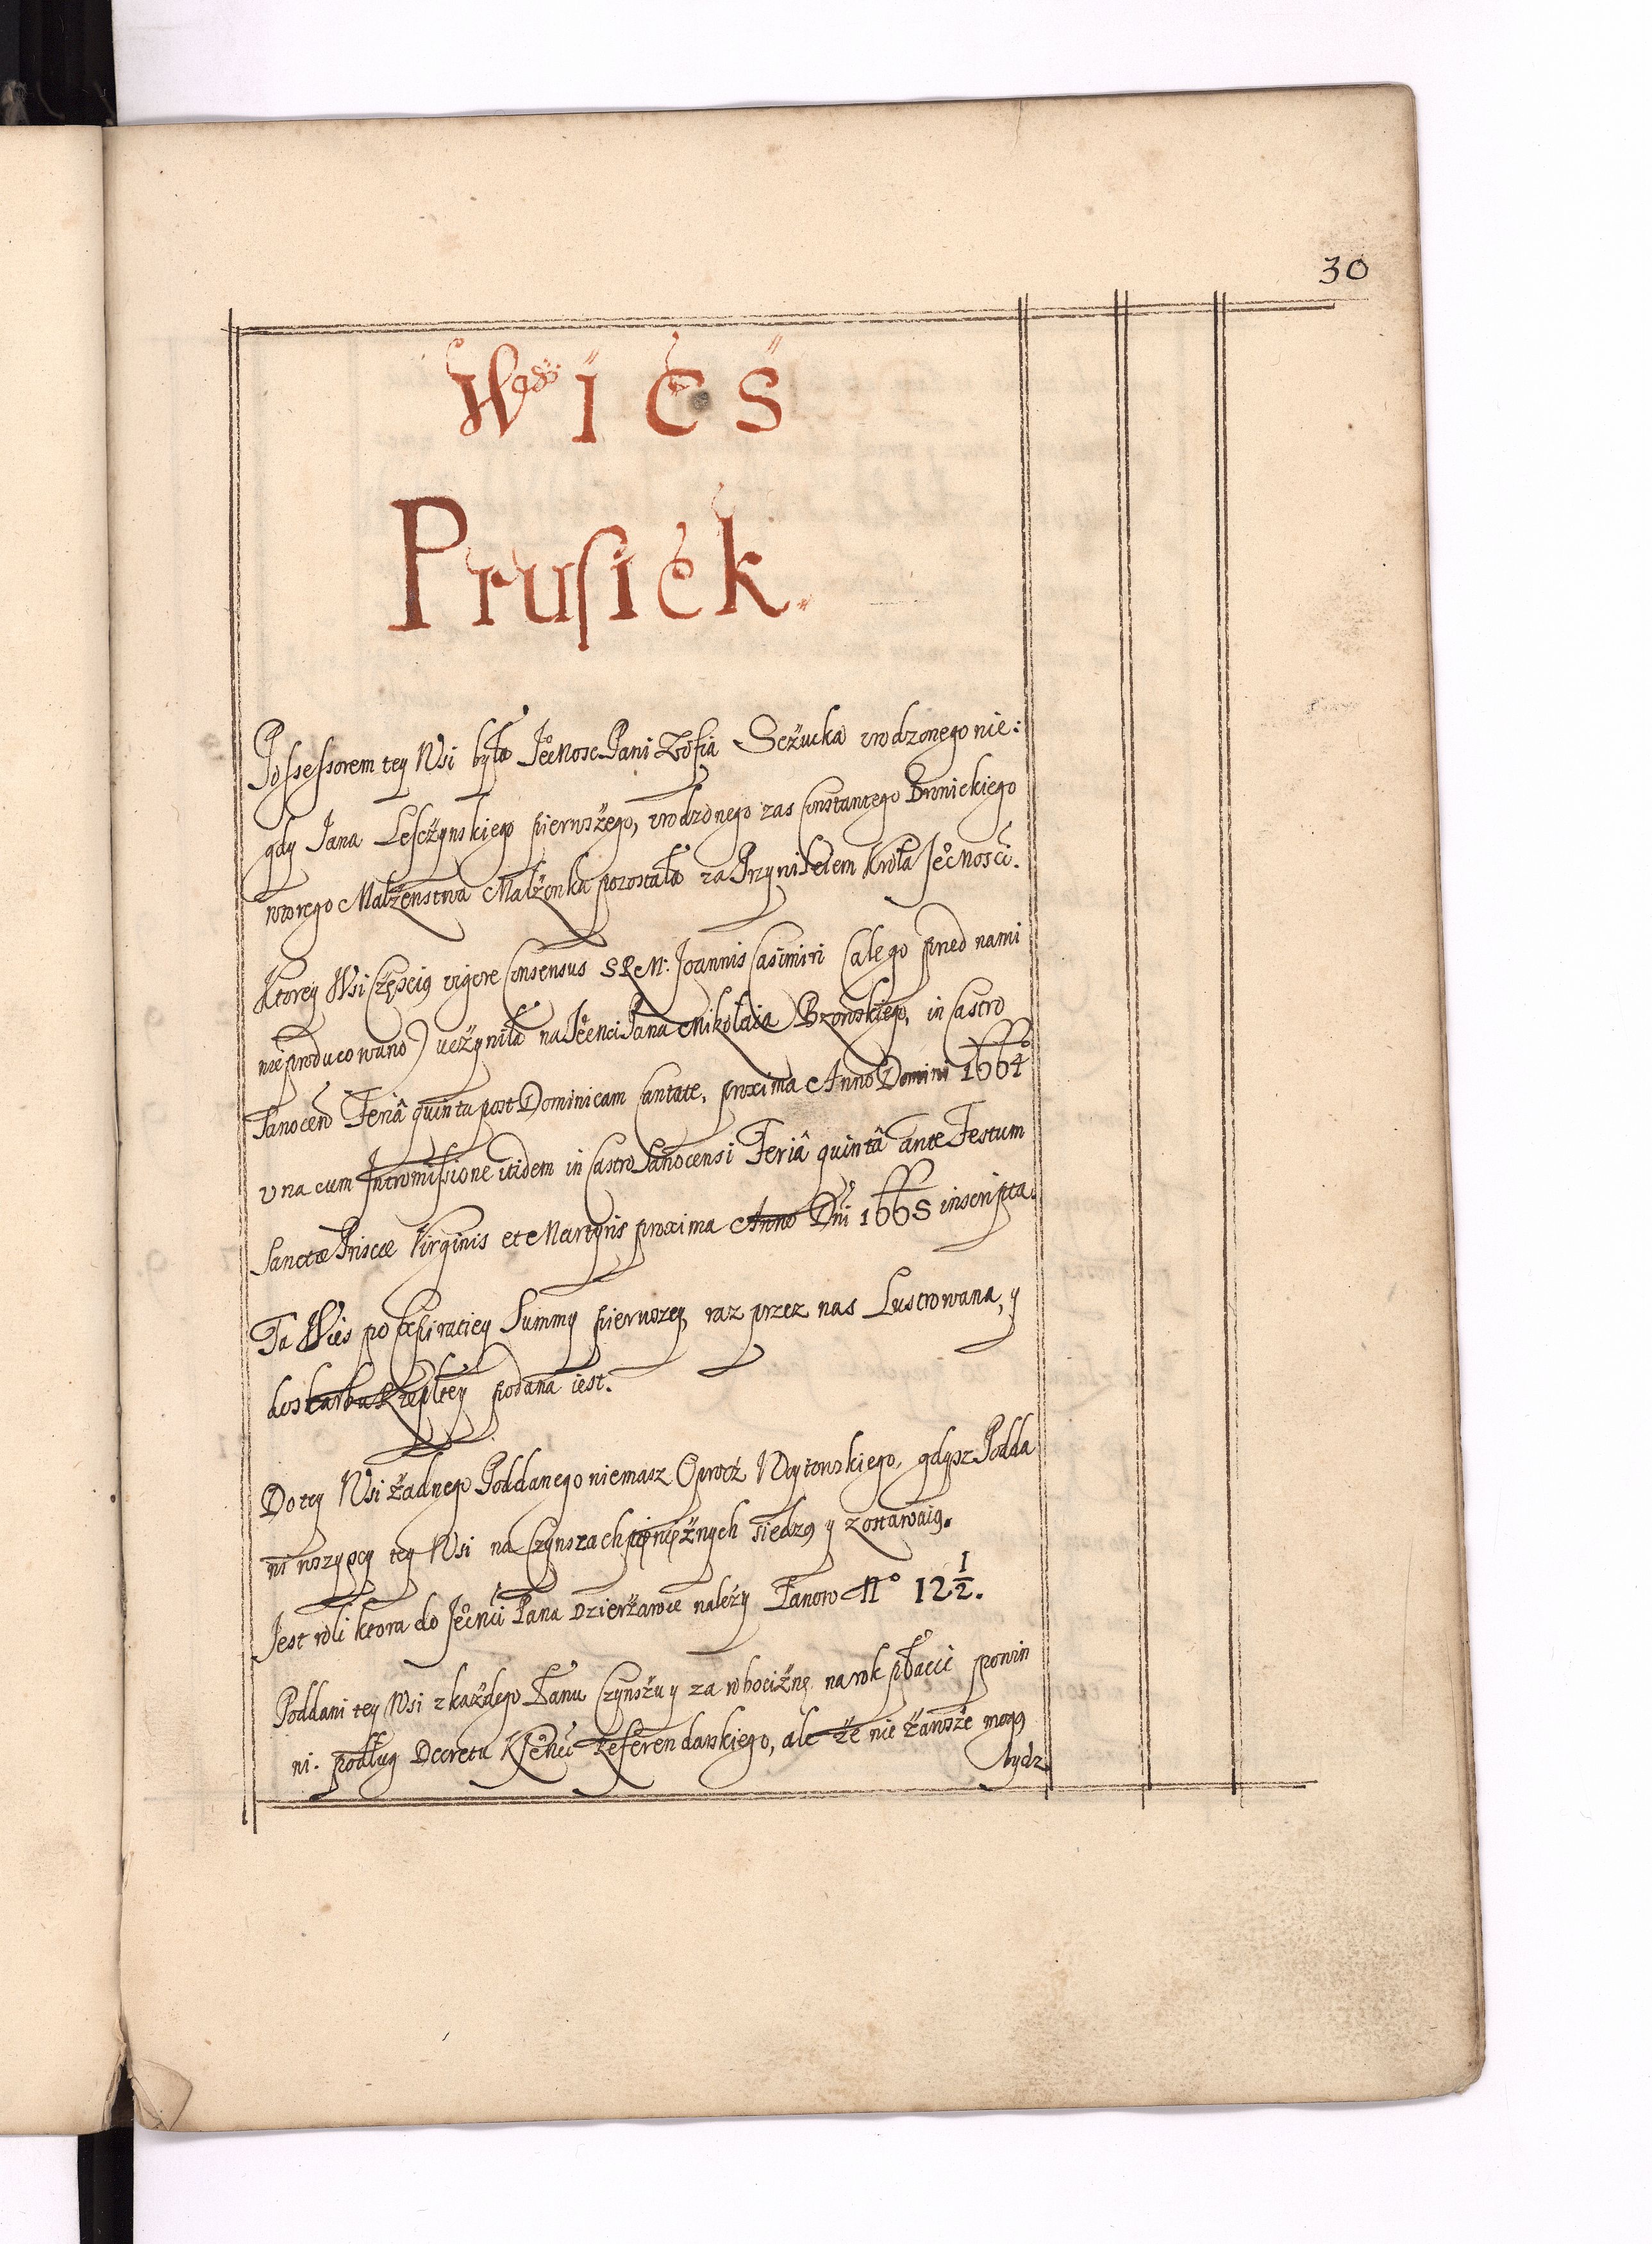 30
Wieś
Prusiek.
Possessorem tey Wsi była JeoMosc Pani Zofia Sczucka vrodzonego nie:
gdy Jana Lesczynskiego pierwszego, vrodzonego zas Constantego Bronickiego
wtorego Małzenstwa Małzonka pozostała za Przywileiem Krola JeoMosci.
Ktorey Wsi Częscią vigore Consensus SRM: Joannis Casimiri Cale go pred nami
nie producowano) uczyniła na JeoMci Pana Mikołaia Brzowskiego, in Castro
Sanocen Feriâ quinta post Dominicam Cantate, proxima Anno Domini 1664
vna cum Intromissione itidem in Castro Sanocensi Feriâ quintâ ante Festum
Sanctæ Priscæ Virginis et Martyris proxima Anno Dni 1665 inscripta.
Ta Wies po expiratiey Summy pierwszey, raz przez nas Lustrowana, y
do skarbu Rzepltey podana iest.
Do tey Wsi żadnego Poddanego niemasz Oprocż Woytowskiego, gdysz Podda
ni wszyscy tey Wsi na Czynszach pieniężnych siedzą y zostawaią.
Jest roli ktora do JeoMci Pana Dzierżawce należy Łanow No 12 1/2.
Poddani tey Wsi z każdego Łanu Czynszu y za robociżnę na rok płacic powin
ni. podług Decretu KJeoMci Referendarskiego, ale że nie żawsże mogą
bydz